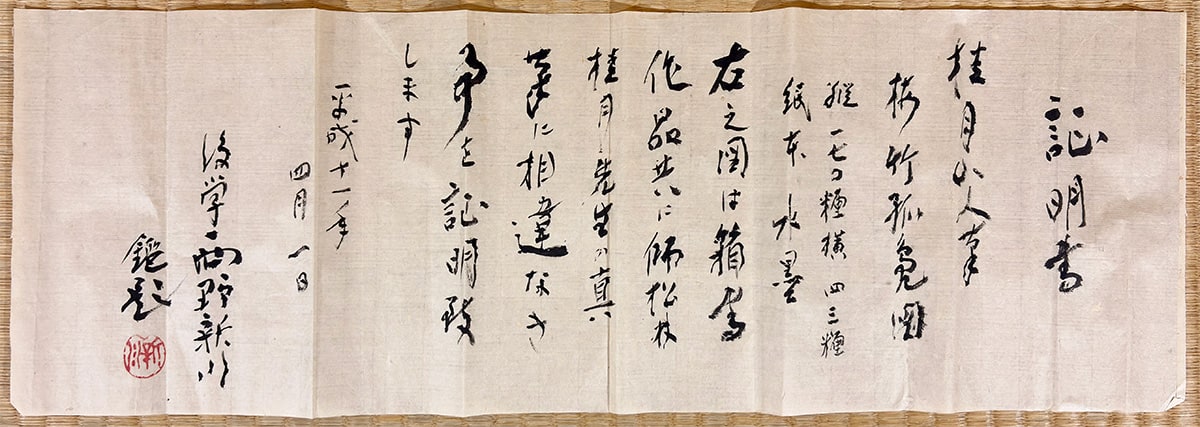 証明書
桂月山人筆
梅竹孤亀図
縦 一七〇糎横 四三糎
紙本 水墨
右之図は箱書
作品共に師松林
桂月先生の真
筆に相違なき
事を証明致
します
平成十一年
四月一日
後学 西野新川
鑑題
新川